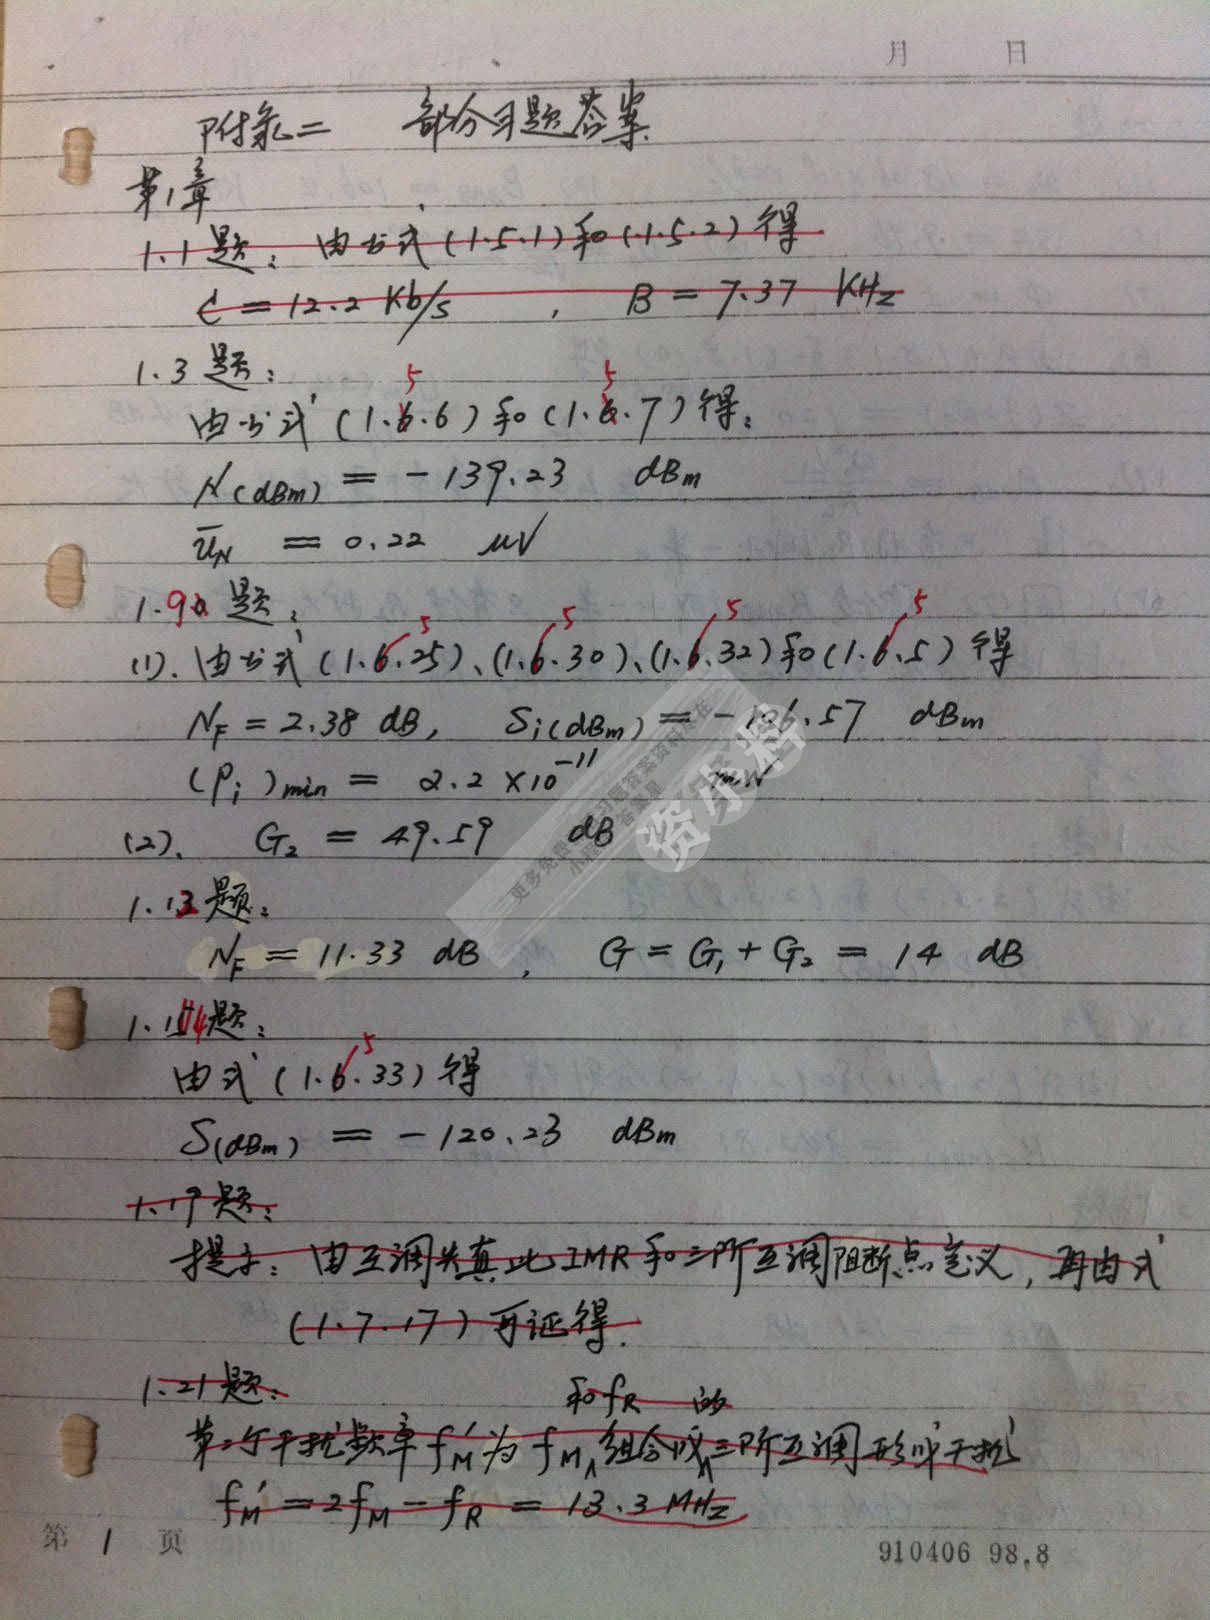 月 日
附录二 部分习题答案
第1章
1.1题：由公式(1.5.1)和(1.5.2)得
C = 12.2 Kb/s ， B = 7.37 KHz
1.3题：
5 5
由公式(1.6.6)和(1.6.7)得：
N(dBm) = -139.23 dBm
ūN = 0.22 μV
1.9题：
5 5 5 5
(1). 由公式(1.6.25)、(1.6.30)、(1.6.32)和(1.6.5)得
NF = 2.38 dB, Si(dBm) = -106.57 dBm
(Pi)min = 2.2 × 10⁻¹¹ mW
(2). G₂ = 49.59 dB
1.13题：
NF = 11.33 dB , G = G₁ + G₂ = 14 dB
1.14题：
5
由式(1.6.33)得
S(dBm) = -120.23 dBm
1.19题：
提示：由互调失真比IMR和三阶互调阻断点定义，再由式
(1.7.17)可证得.
1.21题：
和fR 的
第二个干扰频率f'M为fM∧组合成∧三阶互调形成干扰
f'M = 2fM - fR = 13.3 MHz
第 1 页
910406 98.8
更多免费 习题答案资料尽在
小程序 答案星
资乐料